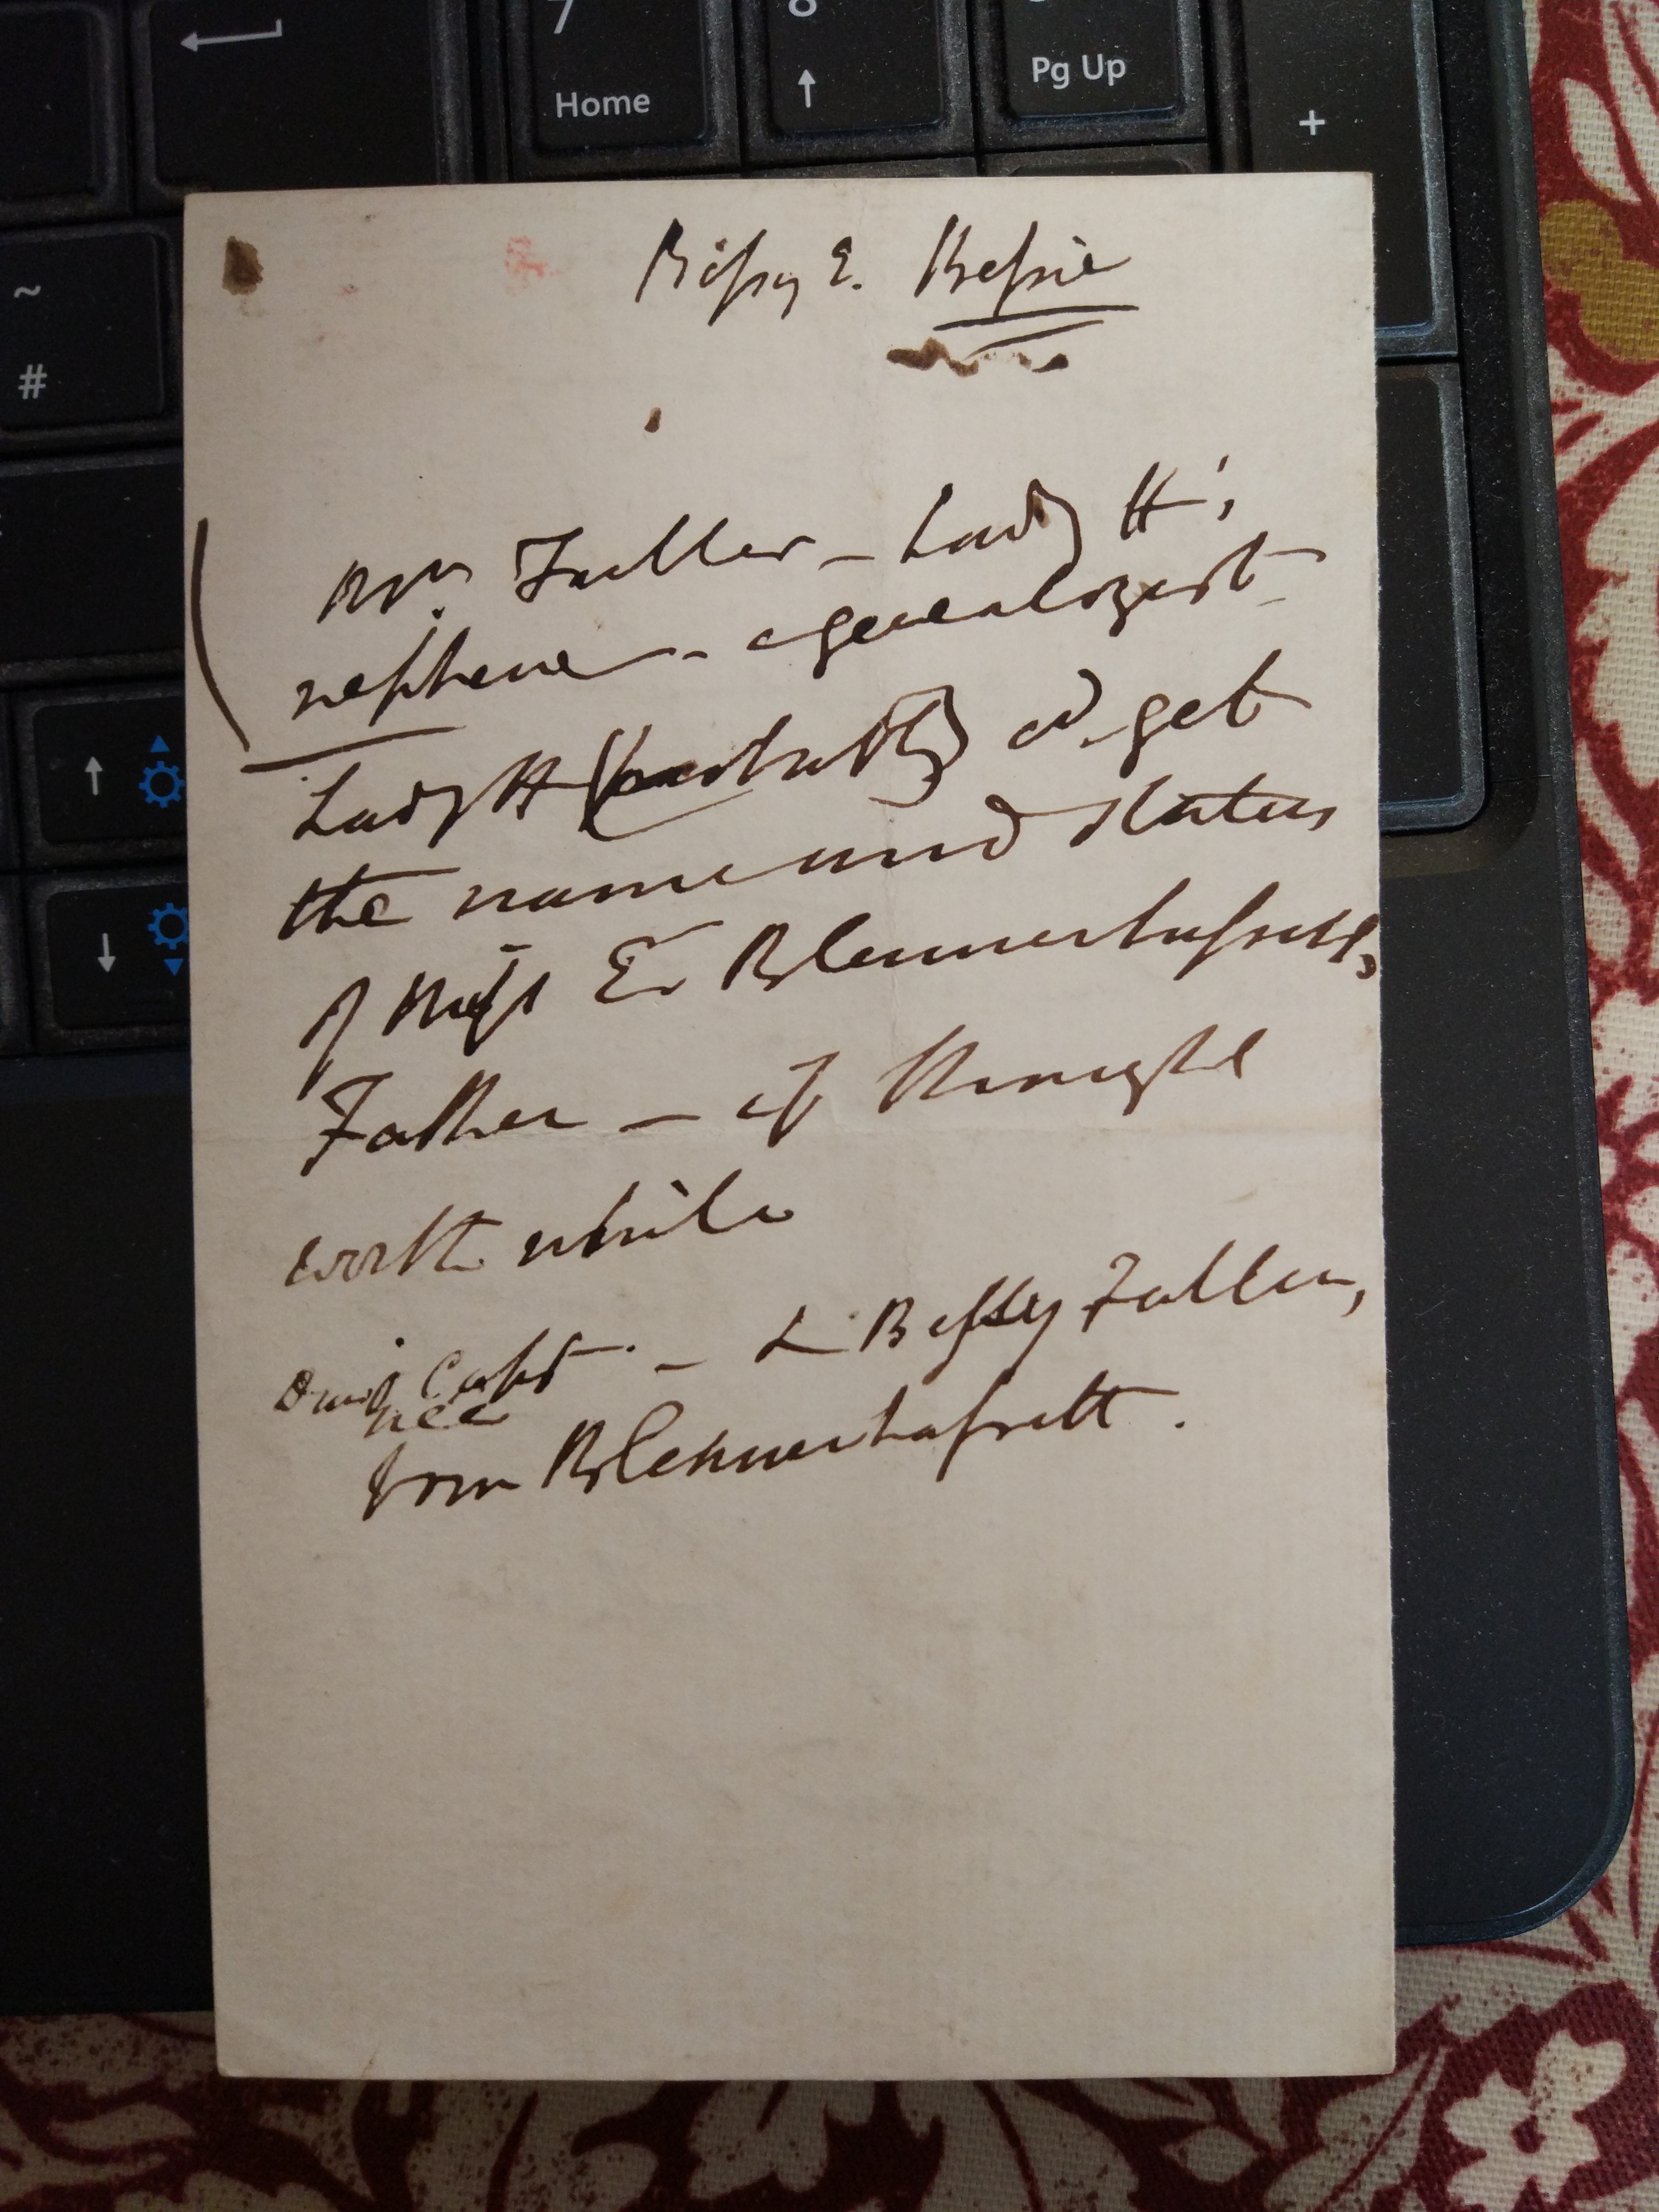 7 8
Home ↑ Pg Up +
~
#
↑
↓
Bessy E. Bessie
Wm. Fuller – Lady H's
nephew – a genealogist
Lady H (probably) cd. get
the name and status
of Miss E. Blennerhassett's
Father – if thought
worth while
Capt. – L Bessy Fuller,
nee
from Blennerhassett.